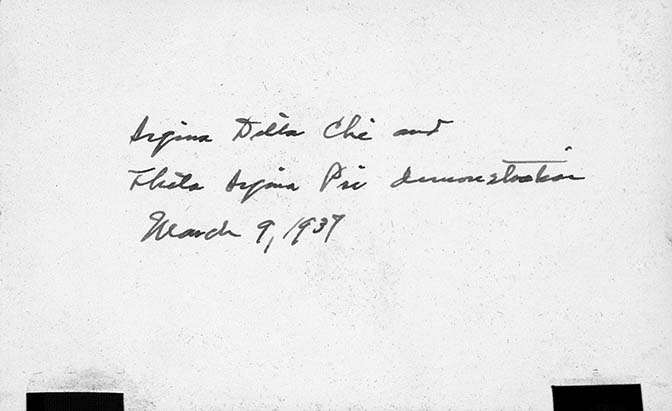 Sigma Delta Chi and
Theta Sigma Psi demonstration
March 9, 1937